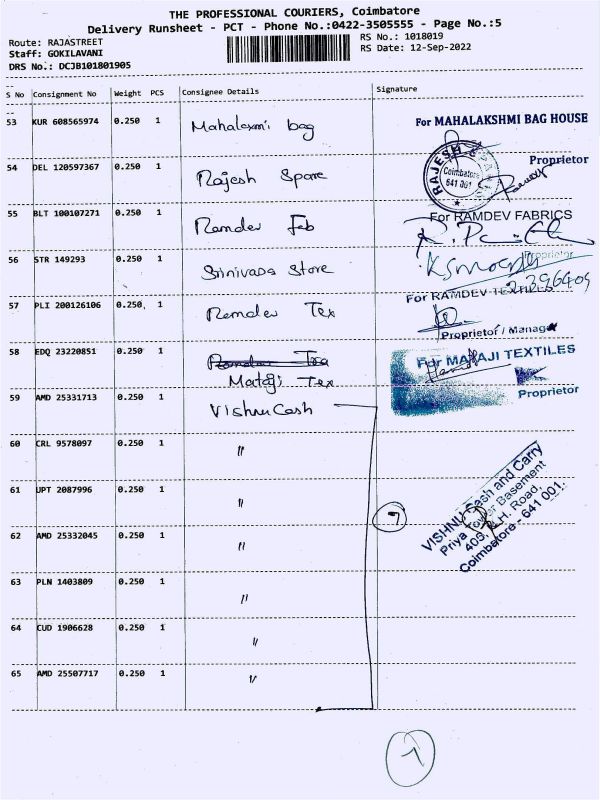 THE PROFESSIONAL COURIERS, Coimbatore
Delivery Runsheet - PCT - Phone No.:0422-3505555 - Page No.:5
Route: RAJASTREET
RS No.: 1018019
Staff: GOKILAVANI
RS Date: 12-Sep-2022
DRS No.: DCJB101801905
S No Consignment No Weight PCS Consignee Details Signature
53 KUR 608565974 0.250 1 Mahalaxmi bag
For MAHALAKSHMI BAG HOUSE
Proprietor
54 DEL 120597367 0.250 1 Rajesh Spare
RAJESH
Coimbatore
641 001
55 BLT 100107271 0.250 1 Ramdev Fab
For RAMDEV FABRICS
Proprietor
56 STR 149293 0.250 1 Srinivasa Store
57 PLI 200126106 0.250 1 Ramdev Tex
For RAMDEV TEXTILES
Proprietor / Manager
58 EDQ 23220851 0.250 1
Mataji Tex
For MATAJI TEXTILES
Proprietor
59 AMD 25331713 0.250 1 Vishnu Cash
60 CRL 9578097 0.250 1 "
61 UPT 2087996 0.250 1 "
62 AMD 25332045 0.250 1 "
63 PLN 1403809 0.250 1 "
64 CUD 1906628 0.250 1 "
65 AMD 25507717 0.250 1 "
7
VISHNU Cash and Carry
Priya Tower Basement
409, R.H. Road,
Coimbatore - 641 001.
7